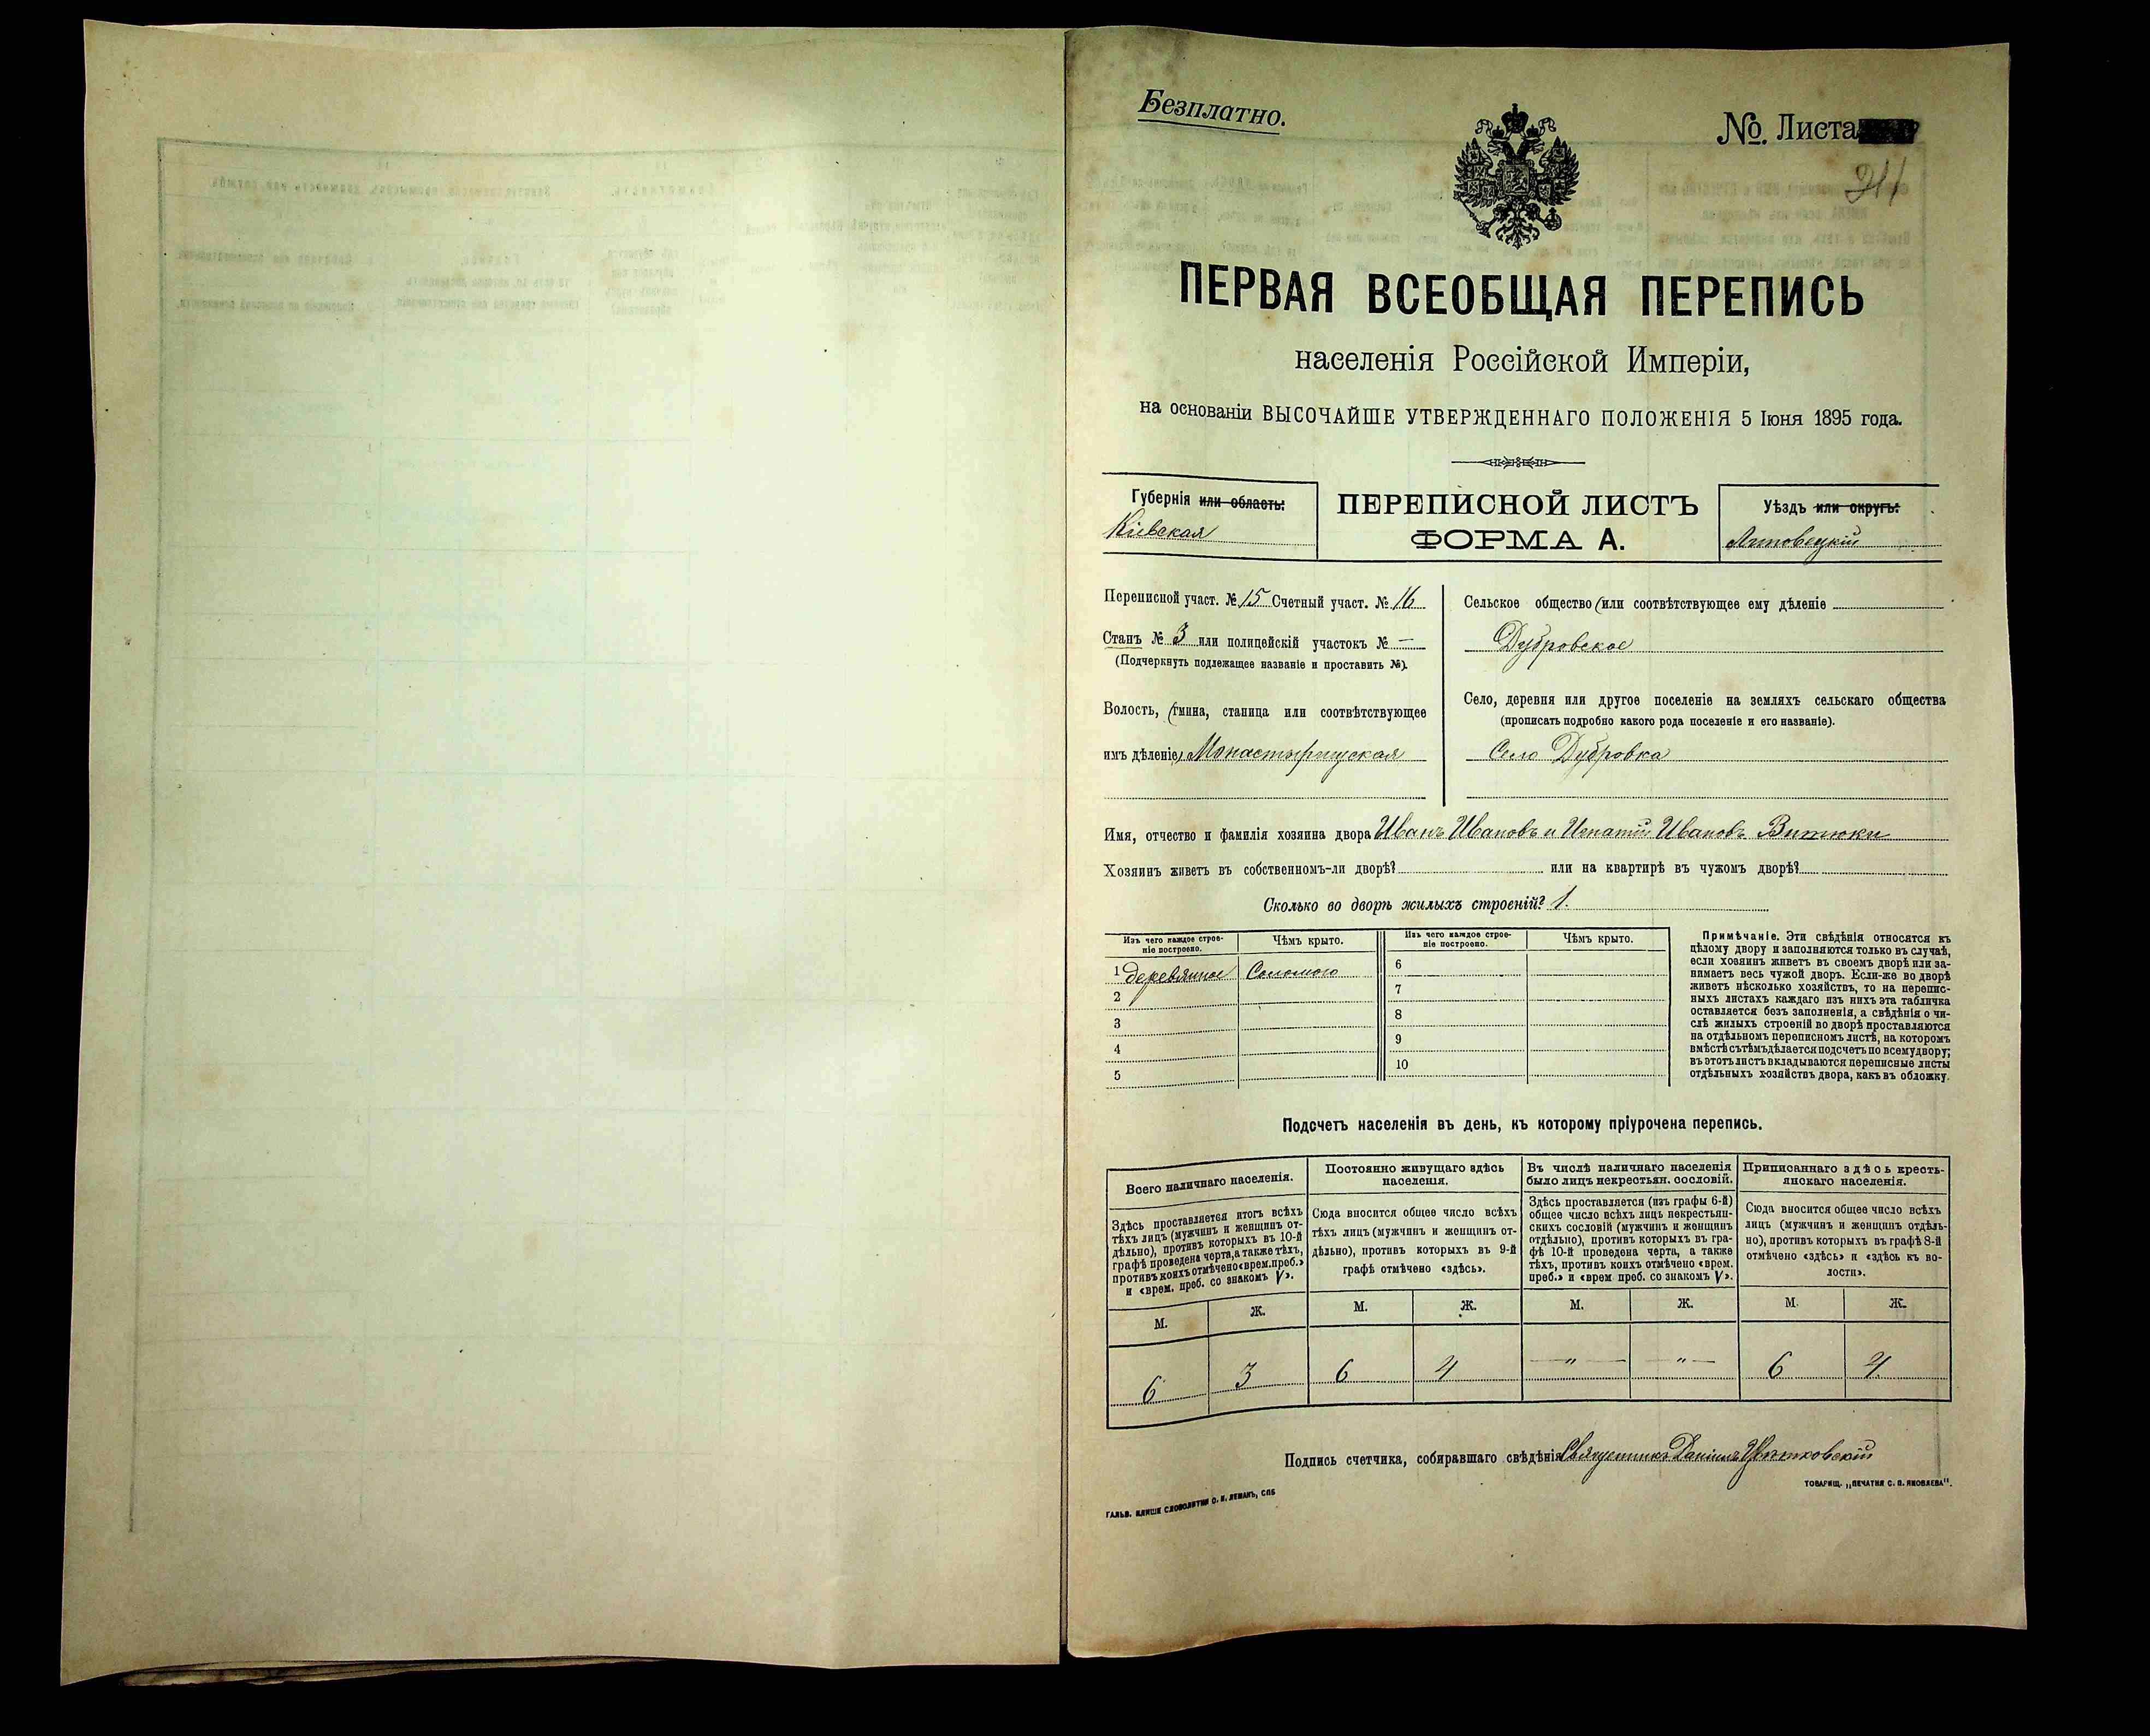 Безплатно.
№. Листа
ПЕРВАЯ ВСЕОБЩАЯ ПЕРЕПИСЬ
населенія Россійской Имперіи,
на основаніи ВЫСОЧАЙШЕ УТВЕРЖДЕННАГО ПОЛОЖЕНІЯ 5 Іюня 1895 года.
Губернія или область:
Кіевская
ПЕРЕПИСНОЙ ЛИСТЪ
ФОРМА А.
Уѣздъ или округъ:
Липовецкій
Переписной участ. № 15 Счетный участ. № 16
Станъ № 3 или полицейскій участокъ № —
(Подчеркнуть подлежащее названіе и проставить №).
Волость, (гмина, станица или соотвѣтствующее
имъ дѣленіе) Монастырищская
Сельское общество (или соотвѣтствующее ему дѣленіе
Дубровское
Село, деревня или другое поселеніе на земляхъ сельскаго общества
(прописать подробно какого рода поселеніе и его названіе).
Село Дубровка
Имя, отчество и фамилія хозяина двора Иванъ Ивановъ и Игнатій Ивановъ Витюки
Хозяинъ живетъ въ собственномъ-ли дворѣ? или на квартирѣ въ чужомъ дворѣ?
Сколько во дворѣ жилыхъ строеній? 1.
Изъ чего каждое строе-
ніе построено.
Чѣмъ крыто.
Изъ чего каждое строе-
ніе построено.
Чѣмъ крыто.
1 деревянное Соломою
2
3
4
5
6
7
8
9
10
Примѣчаніе. Эти свѣдѣнія относятся къ
цѣлому двору и заполняются только въ случаѣ,
если хозяинъ живетъ въ своемъ дворѣ или за-
нимаетъ весь чужой дворъ. Если-же во дворѣ
живетъ нѣсколько хозяйствъ, то на перепис-
ныхъ листахъ каждаго изъ нихъ эта табличка
оставляется безъ заполненія, а свѣдѣнія о чи-
слѣ жилыхъ строеній во дворѣ проставляются
на отдѣльномъ переписномъ листѣ, на которомъ
вмѣстѣ съ тѣмъ дѣлается подсчетъ по всему двору;
въ этотъ листъ вкладываются переписные листы
отдѣльныхъ хозяйствъ двора, какъ въ обложку.
Подсчетъ населенія въ день, къ которому пріурочена перепись.
Всего наличнаго населенія.
Здѣсь проставляется итогъ всѣхъ
тѣхъ лицъ (мужчинъ и женщинъ от-
дѣльно), противъ которыхъ въ 10-й
графѣ проведена черта, а также тѣхъ,
противъ коихъ отмѣчено «врем. преб.»
и «врем. преб. со знакомъ V».
Постоянно живущаго здѣсь
населенія.
Сюда вносится общее число всѣхъ
тѣхъ лицъ (мужчинъ и женщинъ от-
дѣльно), противъ которыхъ въ 9-й
графѣ отмѣчено «здѣсь».
Въ числѣ наличнаго населенія
было лицъ некрестьян. сословій.
Здѣсь проставляется (изъ графы 6-й)
общее число всѣхъ лицъ некрестьян-
скихъ сословій (мужчинъ и женщинъ
отдѣльно), противъ которыхъ въ гра-
фѣ 10-й проведена черта, а также
тѣхъ, противъ коихъ отмѣчено «врем.
преб.» и «врем преб. со знакомъ V».
Приписаннаго здѣсь кресть-
янскаго населенія.
Сюда вносится общее число всѣхъ
лицъ (мужчинъ и женщинъ отдѣль-
но), противъ которыхъ въ графѣ 8-й
отмѣчено «здѣсь» и «здѣсь къ во-
лости».
М. Ж. М. Ж. М. Ж. М. Ж.
6 3 6 4 — " — — " — 6 4
Подпись счетчика, собиравшаго свѣдѣнія Священникъ Даніилъ Цвѣтковскій
ГАЛЬВ. КЛИШЕ СЛОВОЛИТНИ О. И. ЛЕМАНЪ, СПБ
ТОВАРИЩ. „ПЕЧАТНЯ С. П. ЯКОВЛЕВА".